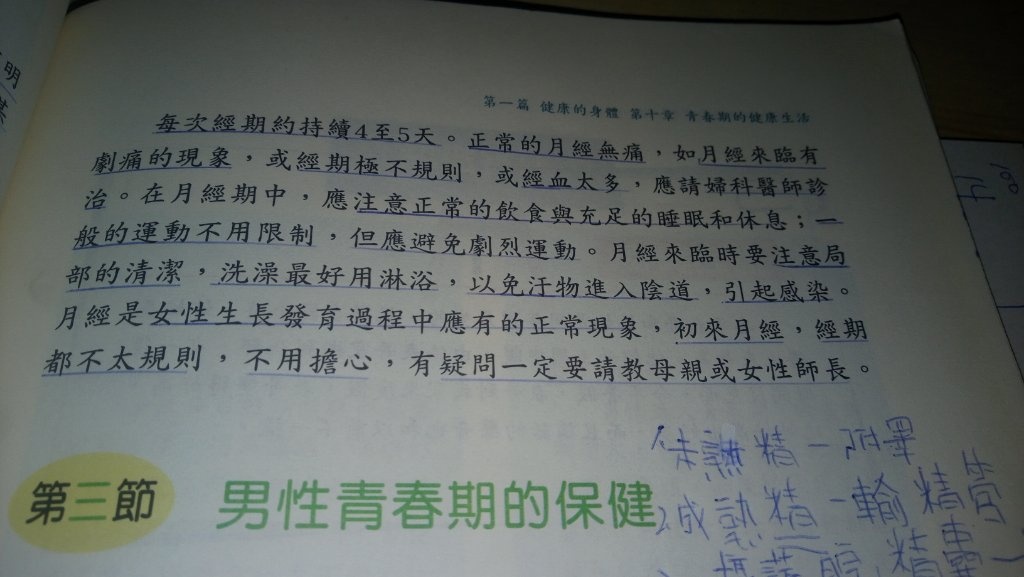 明
第一篇 健康的身體 第十章 青春期的健康生活
每次經期約持續4至5天。正常的月經無痛，如月經來臨有
劇痛的現象，或經期極不規則，或經血太多，應請婦科醫師診
治。在月經期中，應注意正常的飲食與充足的睡眠和休息；一
般的運動不用限制，但應避免劇烈運動。月經來臨時要注意局
部的清潔，洗澡最好用淋浴，以免汙物進入陰道，引起感染。
月經是女性生長發育過程中應有的正常現象，初來月經，經期
都不太規則，不用擔心，有疑問一定要請教母親或女性師長。
第三節 男性青春期的保健
1.未熟精－附睪
2.成熟精－輸精管